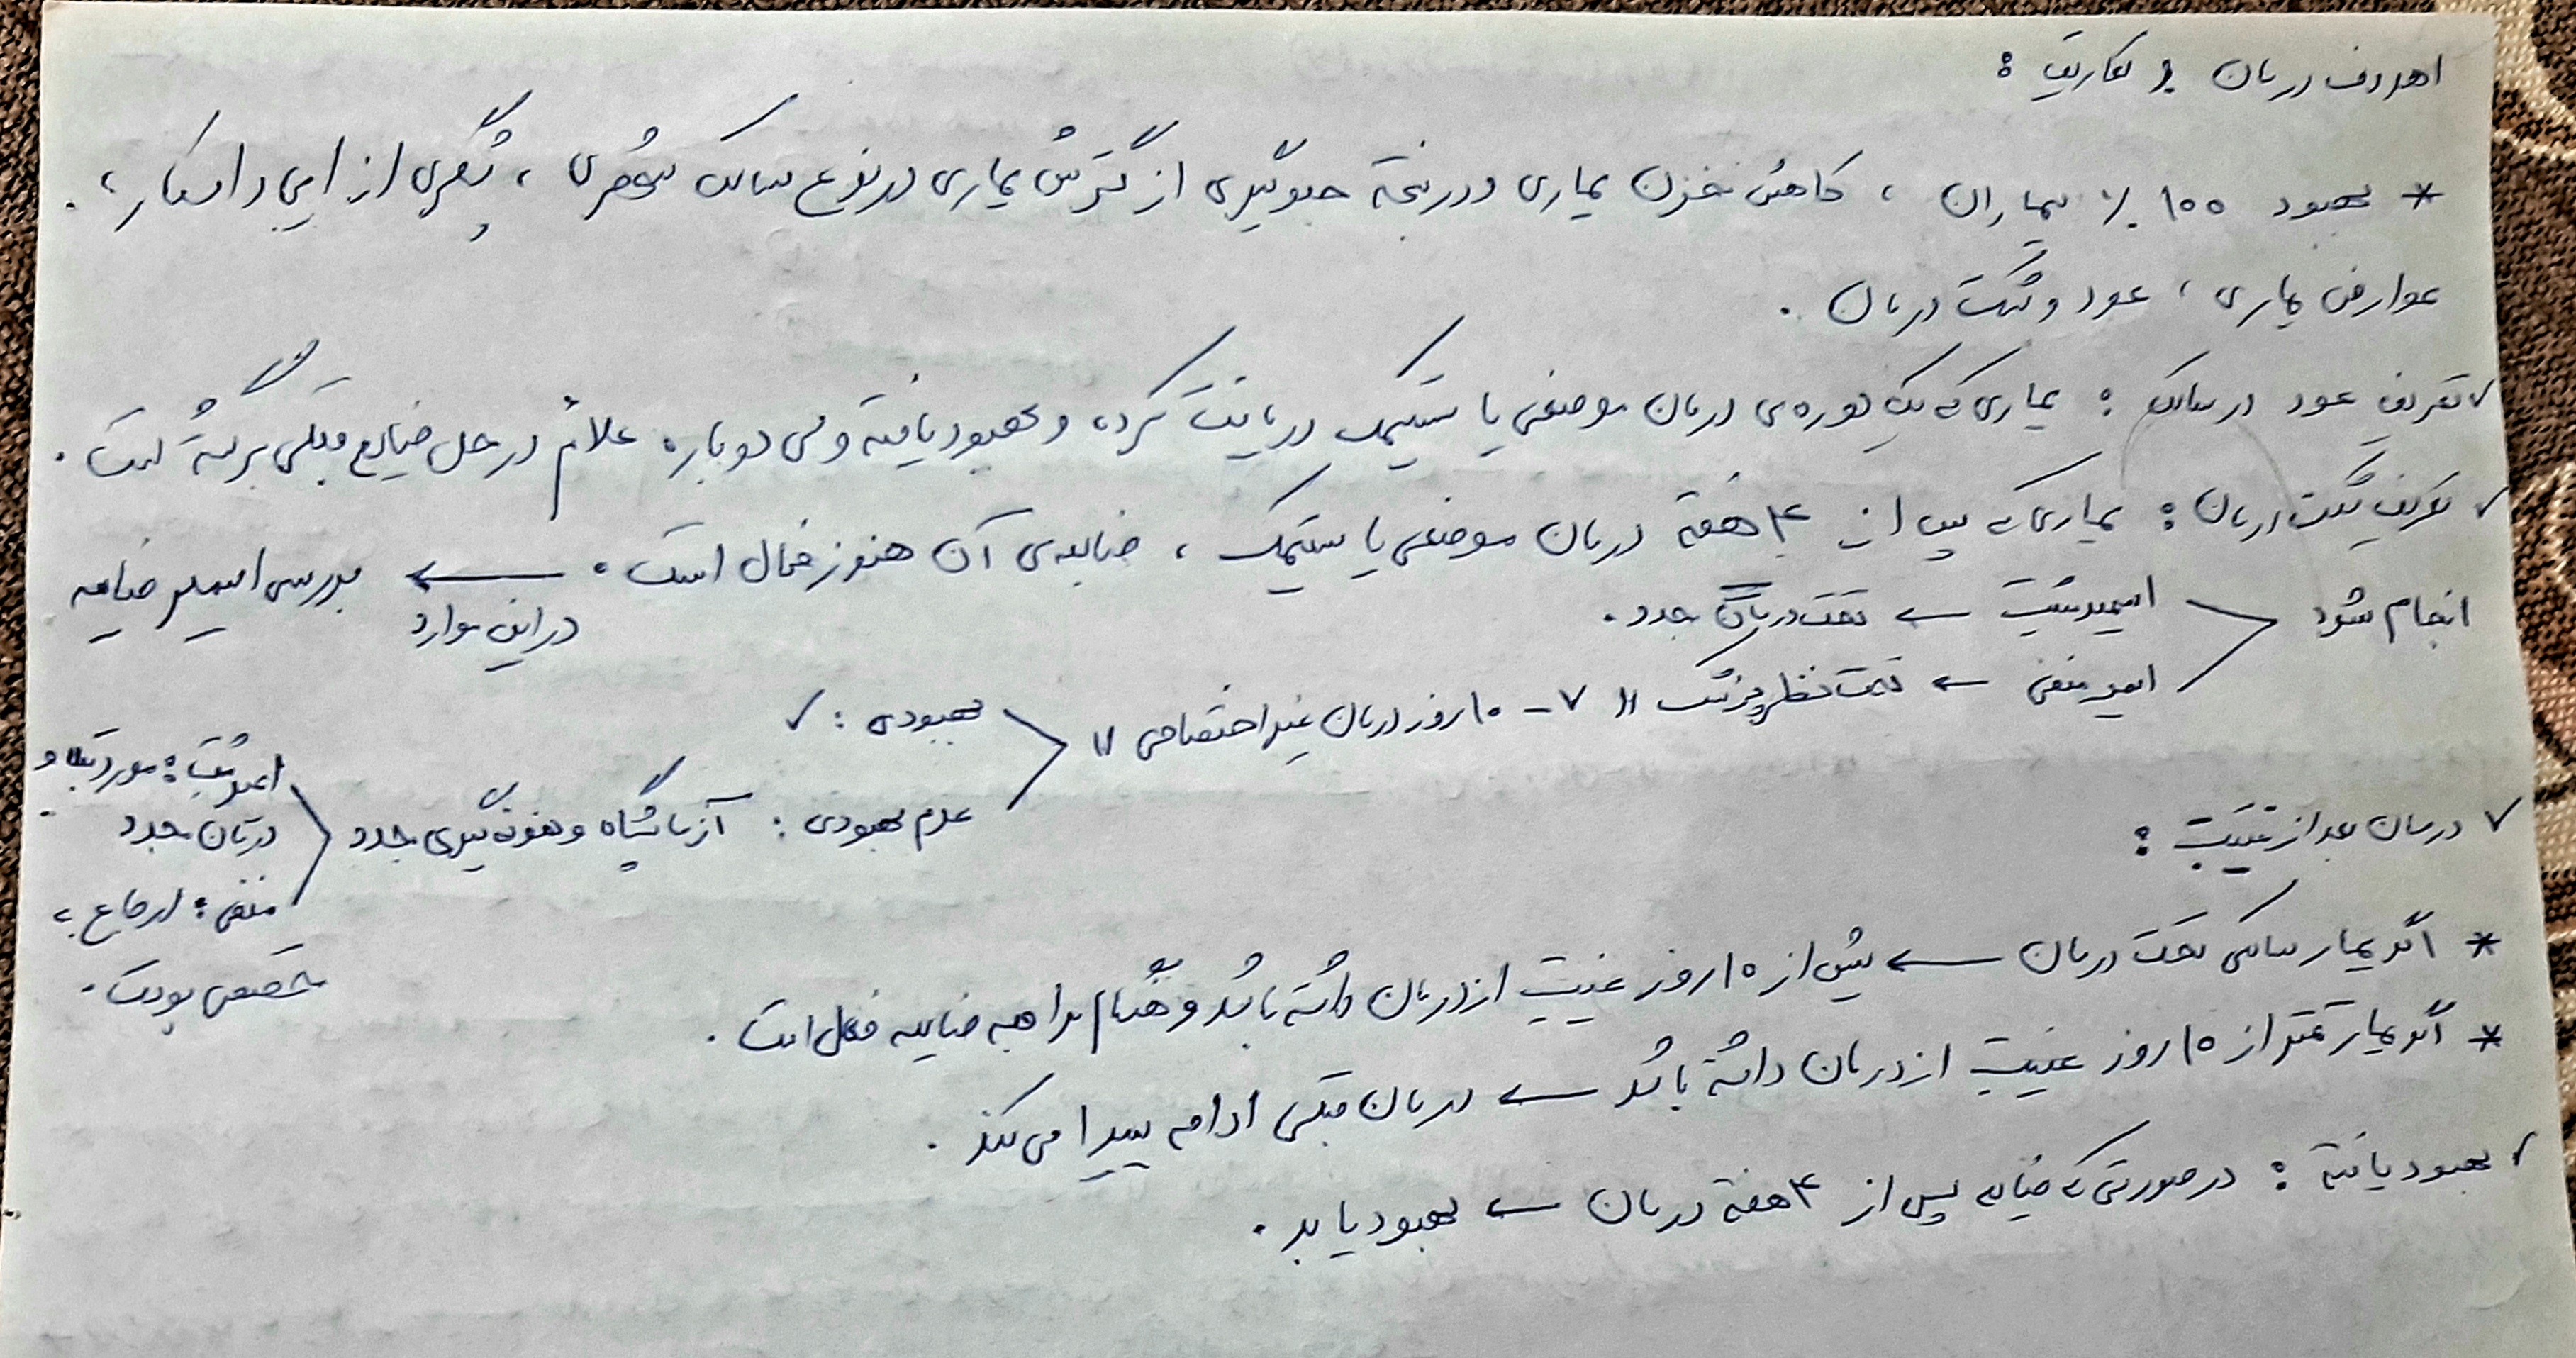 اهداف درمان و تعاریف :
* بهبود ۱۰۰٪ بیماران ، کاهش مخزن بیماری و در نتیجه جلوگیری از گسترش بیماری در نوع سالک شهری ، پیشگیری از ایجاد اسکار ،
عوارض بیماری ، عود و شکست درمان .
✓ تعریف عود در سالک : بیماری که یک دوره‌ی درمان موضعی یا سیستمیک دریافت کرده و بهبود یافته ولی دوباره علائم در محل ضایعه قبلی برگشته است .
✓ تعریف شکست درمان : بیماری که پس از ۴ هفته درمان موضعی یا سیستمیک ، ضایعه‌ی آن هنوز فعال است . ← در این موارد بررسی اسمیر ضایعه
انجام شود
اسمیر مثبت ← تحت درمان مجدد .
اسمیر منفی ← تحت نظر پزشک " ۷ - ۱۰ روز درمان غیر اختصاصی "
بهبودی : ✓
عدم بهبودی : آزمایشگاه و نمونه گیری مجدد
اسمیر مثبت : مورد ابتلا و
درمان مجدد
منفی : ارجاع به
متخصص پوست .
✓ درمان بعد از غیبت :
* اگر بیمار سالکی تحت درمان ← بیش از ۱۵ روز غیبت از درمان داشته باشد و هنگام مراجعه ضایعه فعال است .
* اگر بیمار کمتر از ۱۵ روز غیبت از درمان داشته باشد ← درمان قبلی ادامه پیدا می کند .
✓ بهبود یافته : در صورتی که ضایعه پس از ۴ هفته درمان ← بهبود یابد .